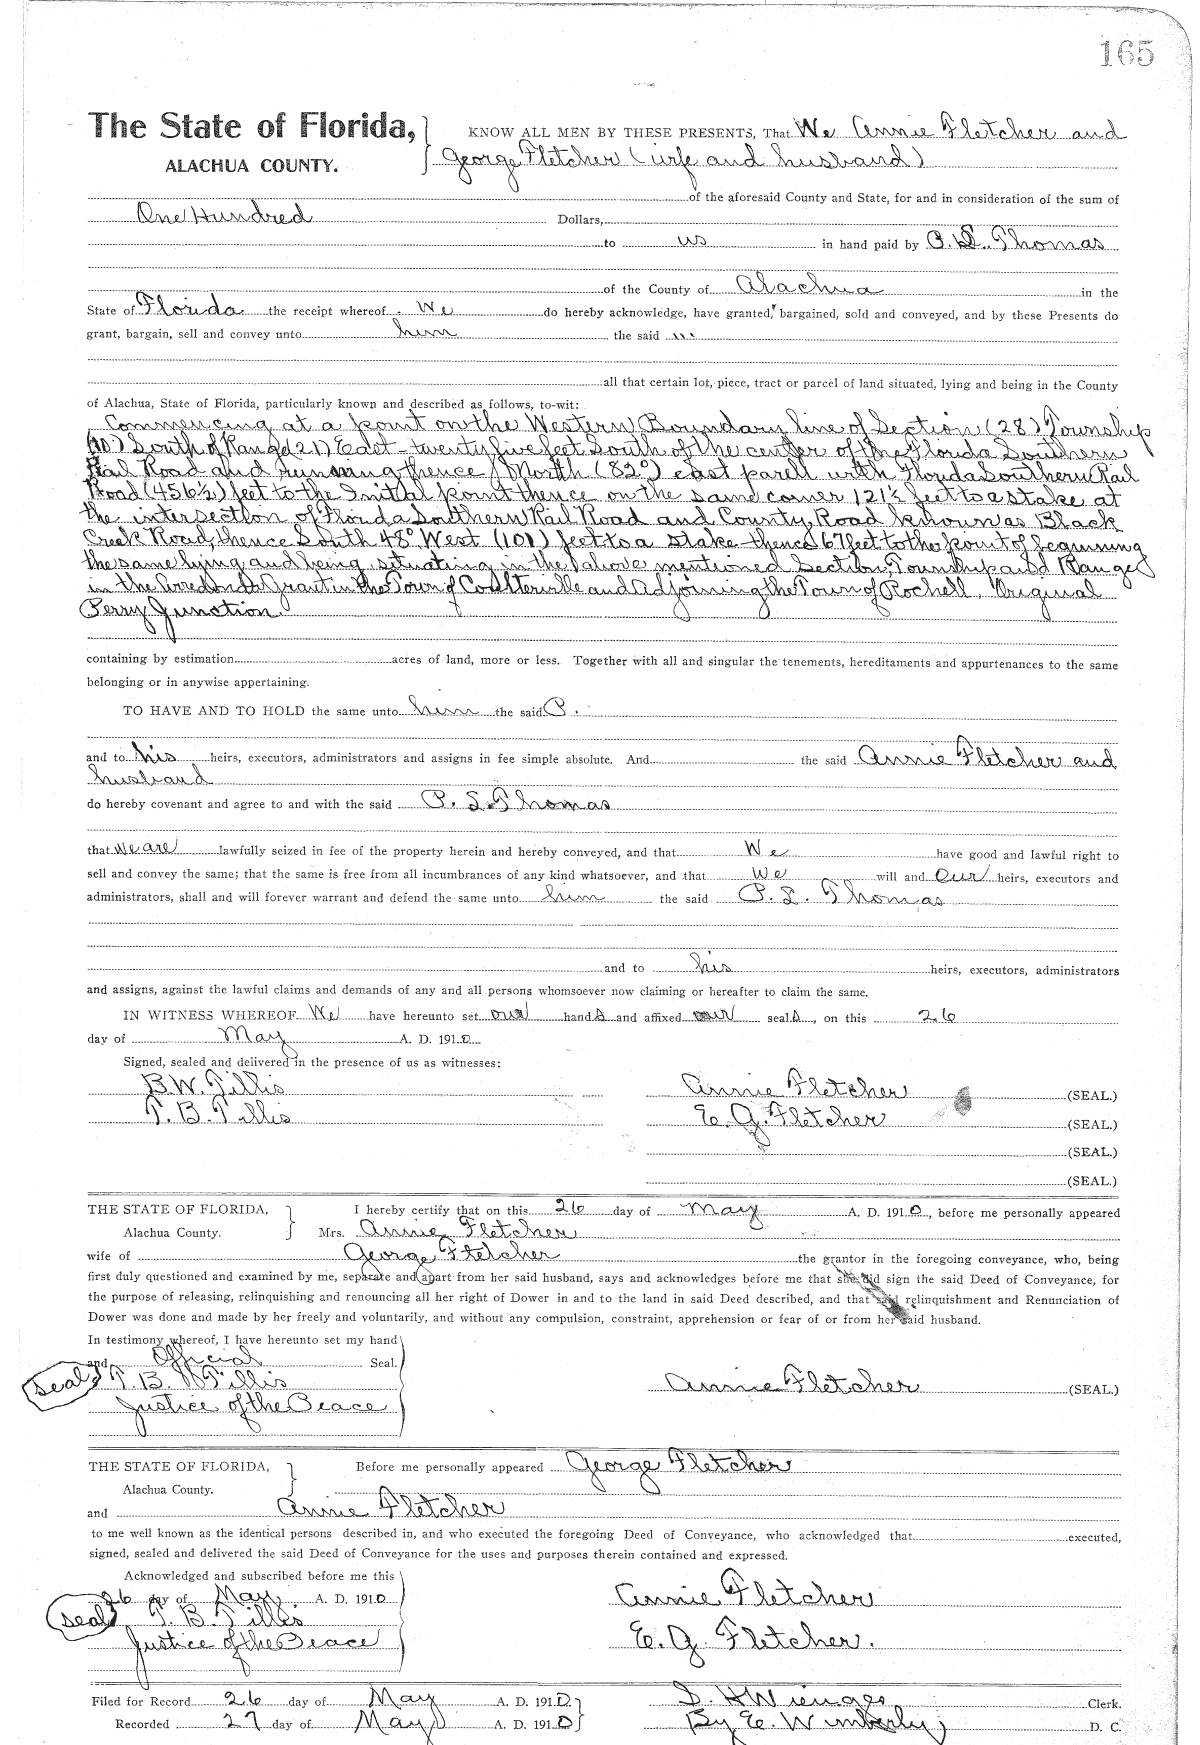 165
The State of Florida,
ALACHUA COUNTY.
KNOW ALL MEN BY THESE PRESENTS, That We Annie Fletcher and
George Fletcher (wife and husband)
of the aforesaid County and State, for and in consideration of the sum of
One Hundred Dollars,
to us in hand paid by P. L. Thomas
of the County of Alachua in the
State of Florida the receipt whereof We do hereby acknowledge, have granted, bargained, sold and conveyed, and by these Presents do
grant, bargain, sell and convey unto him the said
all that certain lot, piece, tract or parcel of land situated, lying and being in the County
of Alachua, State of Florida, particularly known and described as follows, to-wit:
Commencing at a point on the Western Boundary line of Section (28) Township
(10) South of Range (21) East twenty five feet South of the center of the Florida Southern
Rail Road and running thence North (82°) east parell with Florida Southern Rail
Road (456½) feet to the Initial point thence on the same corner 121½ feet to a stake at
the intersection of Florida Southern Rail Road and County Road known as Black
Creek Road, thence South 48° West (101) feet to a stake thence 67 feet to the point of beginning
the same lying and being situating in the above mentioned Section, Township and Range
in the Arredondo Grant in the Town of Coulterville and Adjoining the Town of Rochell, Original
Perry Junction.
containing by estimation acres of land, more or less. Together with all and singular the tenements, hereditaments and appurtenances to the same
belonging or in anywise appertaining.
TO HAVE AND TO HOLD the same unto him the said P.
and to his heirs, executors, administrators and assigns in fee simple absolute. And the said Annie Fletcher and
husband
do hereby covenant and agree to and with the said P. L. Thomas
that we are lawfully seized in fee of the property herein and hereby conveyed, and that We have good and lawful right to
sell and convey the same; that the same is free from all incumbrances of any kind whatsoever, and that we will and our heirs, executors and
administrators, shall and will forever warrant and defend the same unto him the said P. L. Thomas
and to his heirs, executors, administrators
and assigns, against the lawful claims and demands of any and all persons whomsoever now claiming or hereafter to claim the same.
IN WITNESS WHEREOF We have hereunto set our hands and affixed our seals, on this 26
day of May A. D. 1910
Signed, sealed and delivered in the presence of us as witnesses:
B. W. Tillis Annie Fletcher (SEAL.)
T. B. Tillis E. G. Fletcher (SEAL.)
(SEAL.)
(SEAL.)
THE STATE OF FLORIDA, I hereby certify that on this 26 day of May A. D. 1910, before me personally appeared
Alachua County. Mrs. Annie Fletcher
wife of George Fletcher the grantor in the foregoing conveyance, who, being
first duly questioned and examined by me, separate and apart from her said husband, says and acknowledges before me that she did sign the said Deed of Conveyance, for
the purpose of releasing, relinquishing and renouncing all her right of Dower in and to the land in said Deed described, and that said relinquishment and Renunciation of
Dower was done and made by her freely and voluntarily, and without any compulsion, constraint, apprehension or fear of or from her said husband.
In testimony whereof, I have hereunto set my hand
and Official Seal.
Seal T. B. Tillis Annie Fletcher (SEAL.)
Justice of the Peace
THE STATE OF FLORIDA, Before me personally appeared George Fletcher
Alachua County.
and Annie Fletcher
to me well known as the identical persons described in, and who executed the foregoing Deed of Conveyance, who acknowledged that executed,
signed, sealed and delivered the said Deed of Conveyance for the uses and purposes therein contained and expressed.
Acknowledged and subscribed before me this
26 day of May A. D. 1910 Annie Fletcher
Seal T. B. Tillis
Justice of the Peace E. G. Fletcher.
Filed for Record 26 day of May A. D. 1910 S. H. Wienges Clerk.
Recorded 27 day of May A. D. 1910 By E. Wimberly D. C.